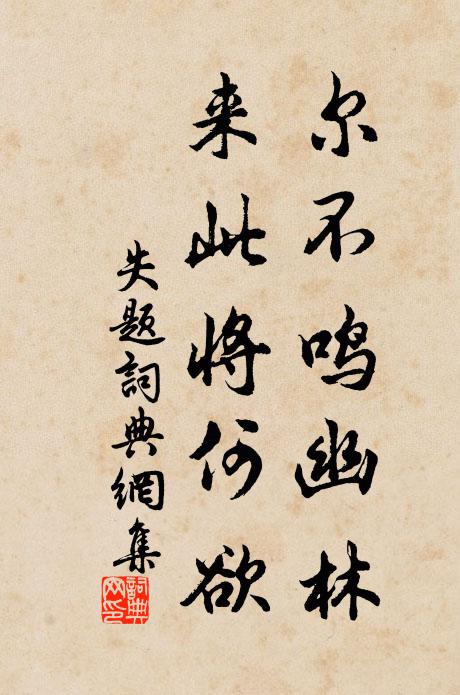 尔不鸣幽林
来此将何欲
失题詞典網集
詞典網印